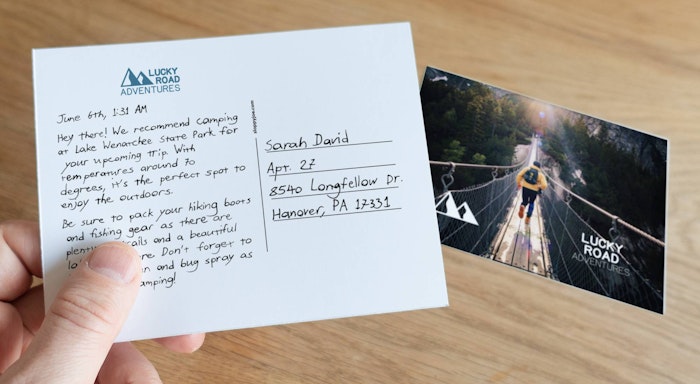 LUCKY
ROAD
ADVENTURES
June 6th, 1:31 AM
Hey there! We recommend camping
at Lake Wenatchee State Park for
your upcoming trip. With
temperatures around 70
degrees, it's the perfect spot to
enjoy the outdoors.
Be sure to pack your hiking boots
and fishing gear as there are
and a beautiful
Don't forget to
and bug spray as
Sarah David
Apt. 27
8540 Longfellow Dr.
Hanover, PA 17331
LUCKY
ROAD
ADVENTURES